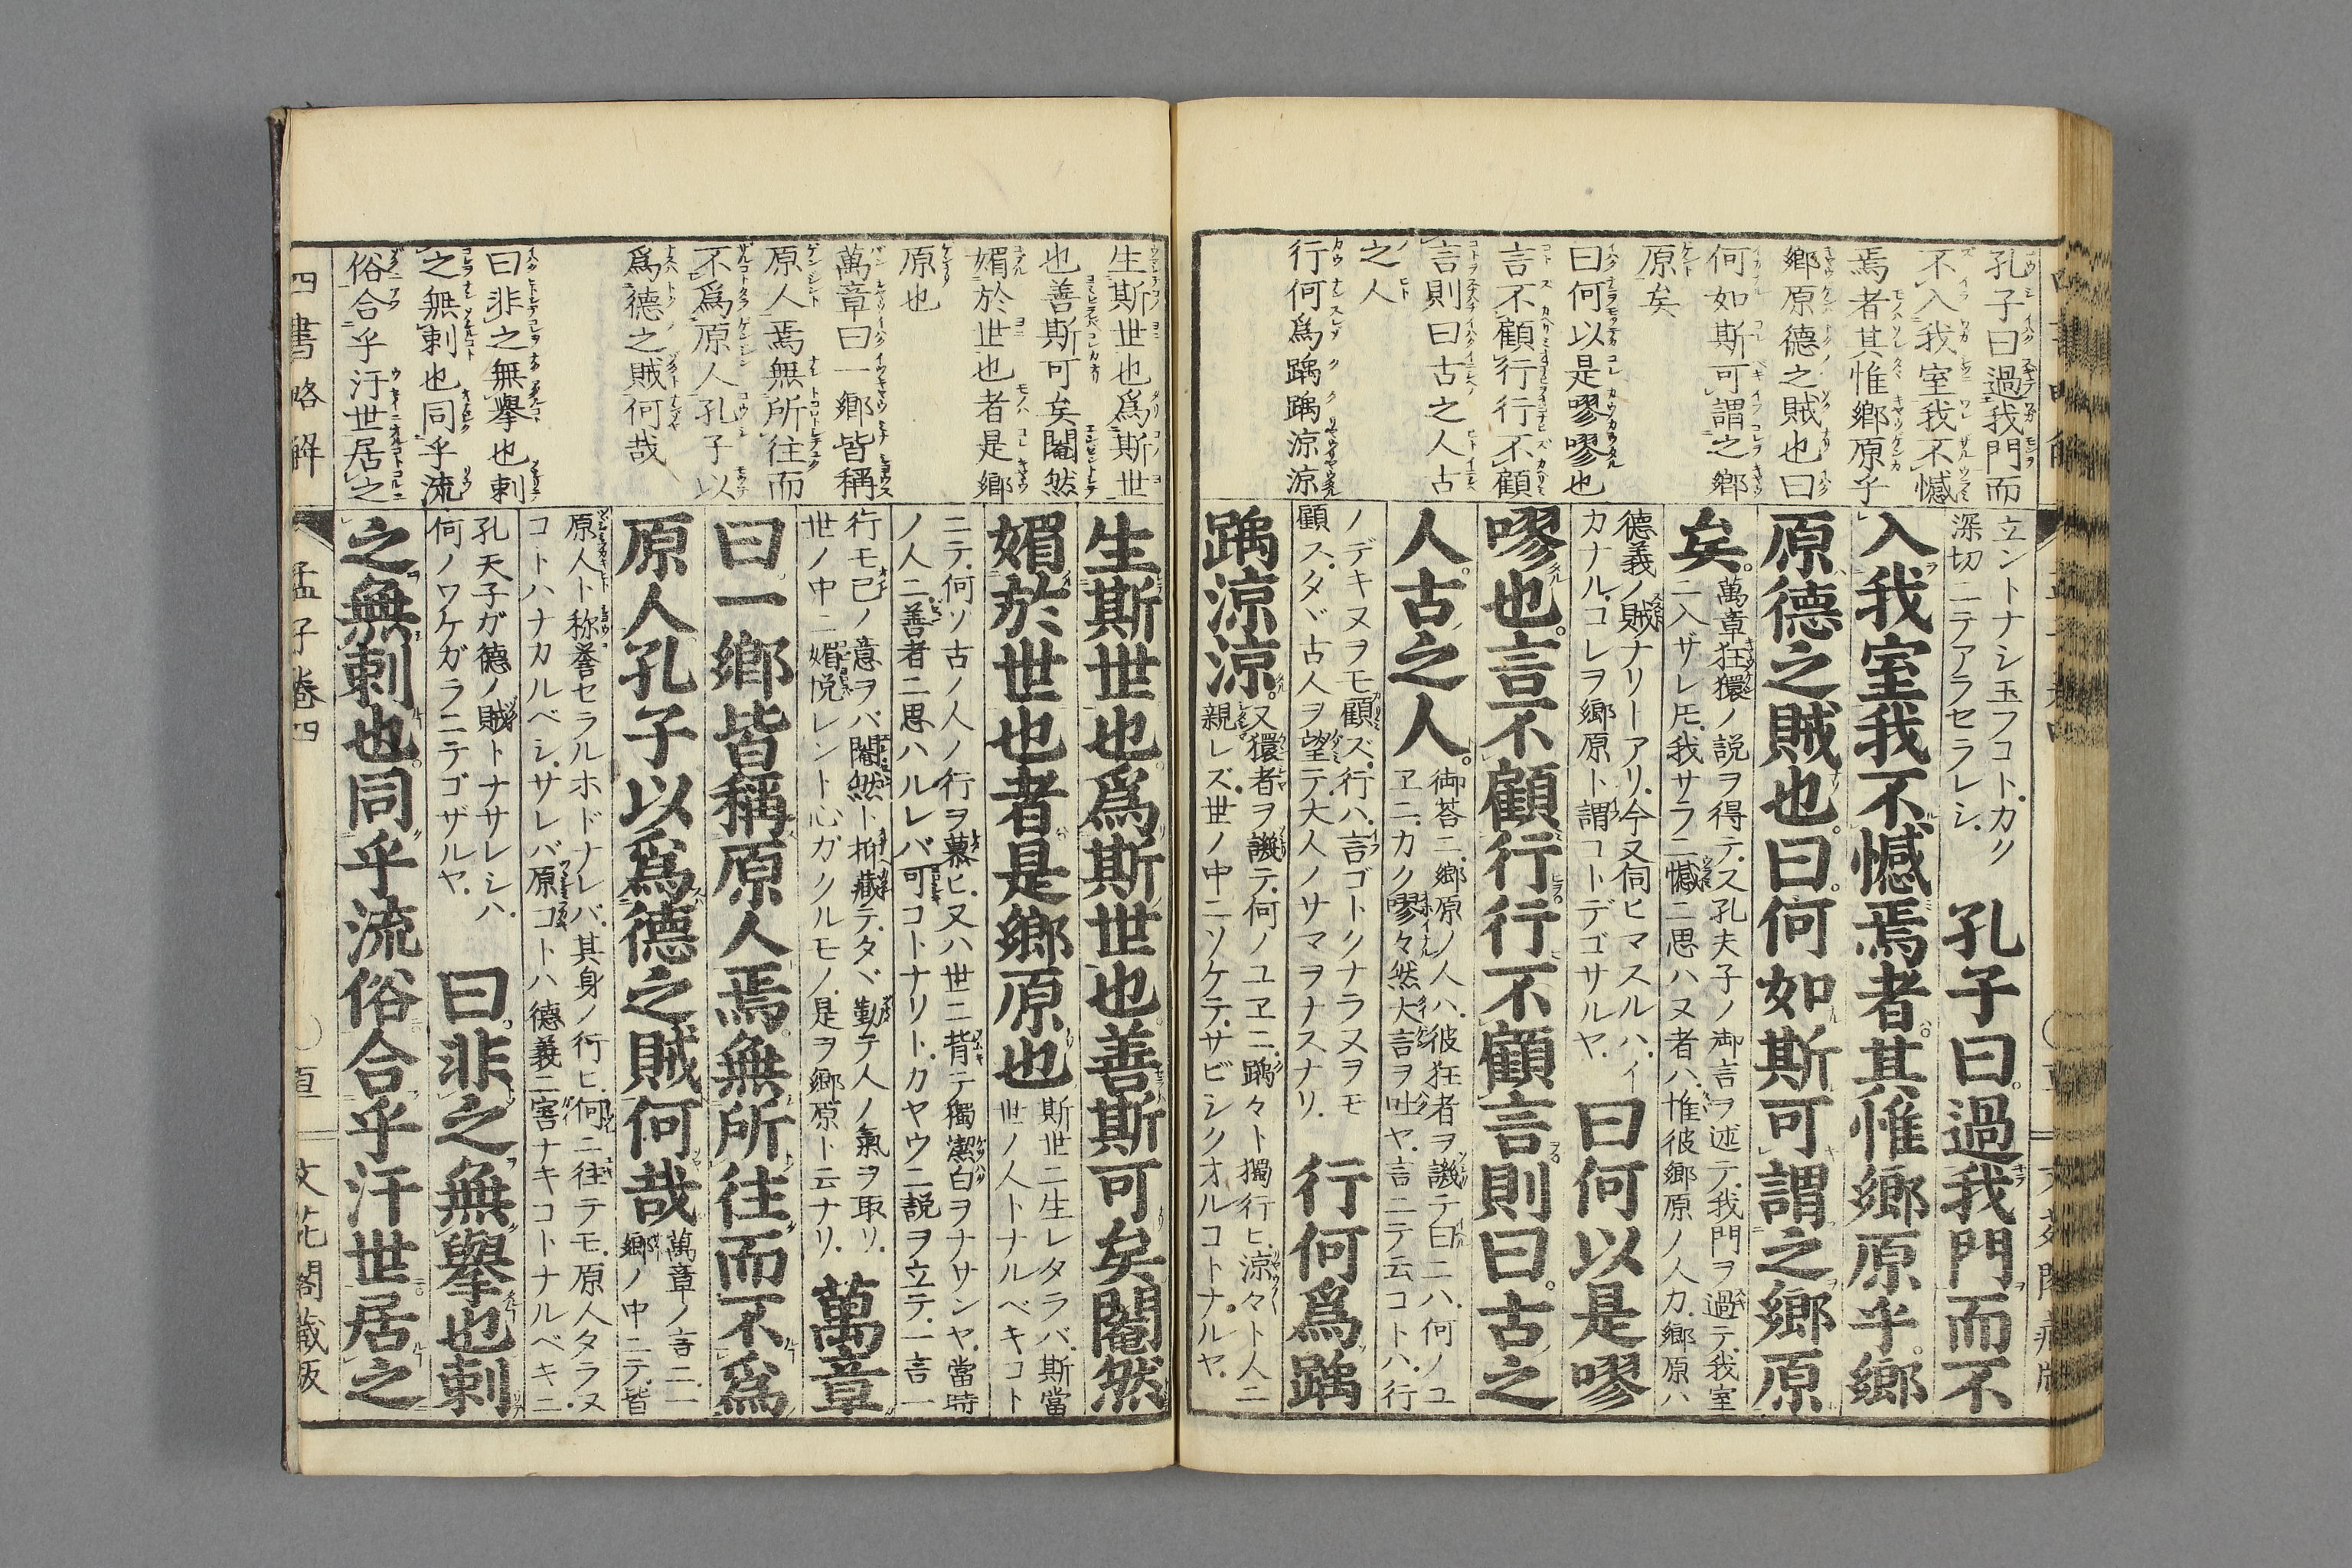 孔子曰過我門而
不入我室我不憾
焉者其惟鄉原乎
鄉原德之賊也曰
何如斯可謂之鄉
原矣
曰何以是嘐嘐也
言不顧行行不顧
言則曰古之人古
之人
行何爲踽踽涼涼
立ントナシ玉フコト.カク
深切ニテアラセラレシ.
孔子曰。過我門而不
入我室我不憾焉者。其惟鄉原乎。鄉
原德之賊也。曰。何如斯可謂之鄉原
矣。
萬章狂獧ノ説ヲ得テ.又孔夫子ノ御言ヲ述テ.我門ヲ過テ.我室
ニ入ザレ𪜈.我サラニ憾ニ思ハヌ者ハ.惟彼鄉原ノ人カ.鄉原ハ
德義ノ賊ナリトアリ.今又伺ヒマスルハ.イ
カナル.コレヲ鄉原ト謂コトデゴサルヤ.
曰何以是嘐
嘐也。言不顧行行不顧言則曰。古之
人。古之人。
御荅ニ.鄉原ノ人ハ.彼狂者ヲ譏テ曰ニハ.何ノユ
ヱニ.カク嘐々然大言ヲ吐ヤ.言ニテ云コトハ.行
ノデキヌヲモ顧ズ.行ハ.言ゴトクナラヌヲモ
顧ズ.タヾ古人ヲ望テ.大人ノサマヲナスナリ.
行何爲踽
踽涼涼。
又獧者ヲ譏テ.何ノユヱニ.踽々ト獨行ヒ.涼々ト人ニ
親レズ.世ノ中ニソケテ.サビシクオルコトナルヤ.
生斯世也爲斯世
也善斯可矣閹然
媚於世也者是鄉
原也
萬章曰一鄉皆稱
原人焉無所往而
不爲原人孔子以
爲德之賊何哉
曰非之無擧也刺
之無刺也同乎流
俗合乎汙世居之
生斯世也爲斯世也善斯可矣閹然
媚於世也者是鄉原也
斯世ニ生レタラバ.斯當
世ノ人トナルベキコト
ニテ.何ソ古ノ人ノ行ヲ慕ヒ.又ハ世ニ背テ獨潔白ヲナサンヤ.當時
ノ人ニ善者ニ思ハルレバ可コトナリト.カヤウニ説ヲ立テ.一言一
行モ己ノ意ヲバ閹然ト抑藏テ.タヾ勤テ人ノ氣ヲ取リ.
世ノ中ニ媚悦レント心ガクルモノ.是ヲ鄉原ト云ナリ.
萬章
曰一鄉皆稱原人焉無所往而不爲
原人孔子以爲德之賊何哉
萬章ノ言ニ.一
鄉ノ中ニテ.皆
原人ト称誉セラルホドナレバ.其身ノ行ヒ.何ニ往テモ.原人タラヌ
コトハナカルベシ.サレバ原コトハ德義ニ害ナキコトナルベキニ.
孔夫子ガ德ノ賊トナサレシハ.
何ノワケガラニテゴザルヤ.
曰非之無擧也刺
之無刺也。同乎流俗合乎汙世居之
四書略解
孟子卷四
文花閣藏版